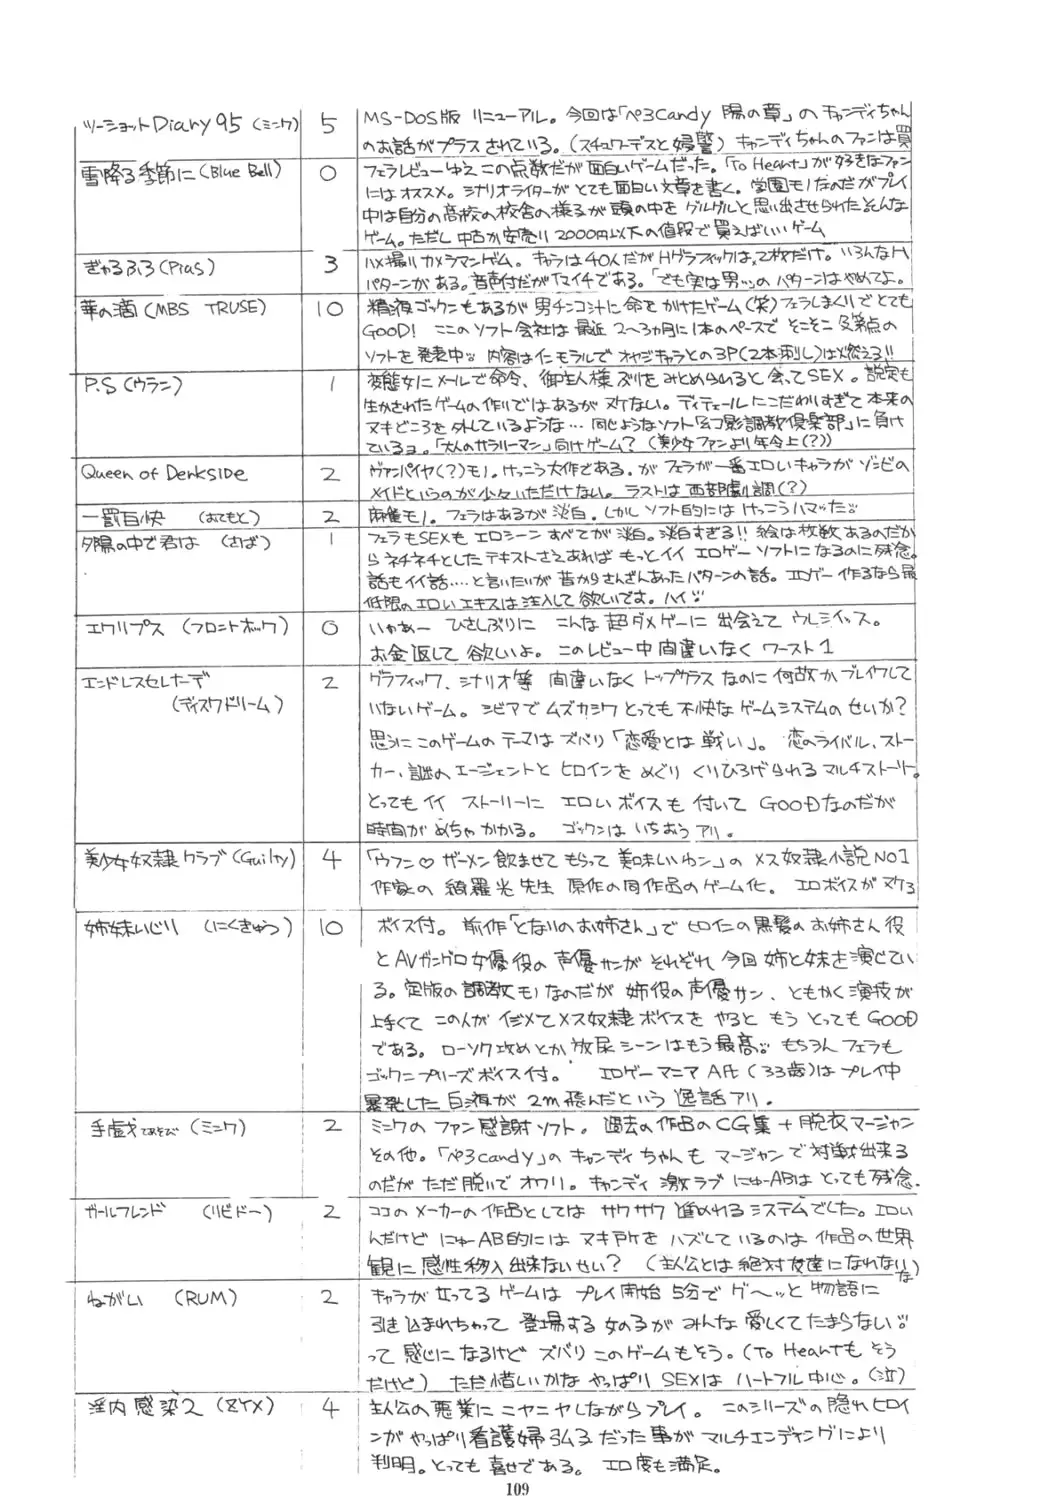 ツーショットDiary95 (ミンク) 5
MS-DOS版 リニューアル。今回は「ぺろCandy 陽の章」のキャンディちゃん
のお話がプラスされている。(スチュワーデスと婦警) キャンディちゃんのファンは買
雪降る季節に(Blue Bell) 0
フェラレビューゆえこの点数だが面白いゲームだった。「To Heart」が好きなファン
にはオススメ。シナリオライターがとても面白い文章を書く。学園モノなのだがプレイ
中は自分の高校の校舎の様子が頭の中をグルグルと思い出させられたそんな
ゲーム。ただし中古か安売り2000円以下の値段で買えばいいゲーム
ぎゃるふろ(Pias) 3
ハメ撮りカメラマンゲーム。キャラは40人だがHグラフィックは、2枚だけ。いろんなH
パターンがある。音声付だがイマイチである。「でも実は男ッ」のパターンはやめてよ。
華の滴(MBS TRUSE) 10
精液ゴックンもあるが男チンコ汁に命をかけたゲーム(笑)フェラしまくりでとても
GOOD! ここのソフト会社は最近2〜3カ月に1本のペースでそこそこ及第点の
ソフトを発表中 内容はインモラルでオヤジキャラとの3P(2本刺し)は燃える!!
P.S(ウラン) 1
変態女にメールで命令、御主人様ぶりをみとめられると会ってSEX。設定も
生かされたゲームの作りではあるがヌケない。ディテールにこだわりすぎて本来の
ヌキどころを外しているような…同じようなソフト「幻影調教倶楽部」に負け
ているョ。「大人のサラリーマン」向けゲーム? (美少女ファンより年令上(?))
Queen of Denkside 2
ヴァンパイヤ(?)モノ。けっこう大作である。がフェラが一番エロいキャラがゾンビの
メイドというのが少々いただけない。ラストは西部劇調(?)
一罰百快 (おてもと) 2
麻雀モノ。フェラはあるが淡白。しかしソフト的にはけっこうハマッた
夕陽の中で君は (さば) 1
フェラもSEXもエロシーンすべてが淡白。淡白すぎる!! 絵は枚数あるのだか
らネチネチとしたテキストさえあればもっとイイエロゲーソフトになるのに残念。
話もイイ話‥‥と言いたいが昔からさんざんあったパターンの話。エロゲー作るなら最
低限のエロいエキスは注入して欲しいです。ハイ
エクリプス (フロントホック) 0
いやあー ひさしぶりに こんな超ダメゲーに出会えてウレシイッス。
お金返して欲しいよ。このレビュー中間違いなくワースト1
エンドレスセレナーデ
(ディスクドリーム) 2
グラフィック、シナリオ等 間違いなくトップクラスなのに何故かブレイクして
いないゲーム。シビアでムズカシクとっても不快なゲームシステムのせいか?
思うにこのゲームのテーマはズバリ「恋愛とは戦い」。恋のライバル、ストー
カー、謎のエージェントとヒロインをめぐりくりひろげられるマルチストーリー。
とってもイイ ストーリーに エロいボイスも付いてGOODなのだが
時間がめちゃかかる。 ゴックンはいちおうアリ。
美少女奴隷クラブ(Guilty) 4
「ウフン♡ザーメン飲ませてもらって美味しいわン」のメス奴隷小説NO1
作家の綺羅光先生原作の同作品のゲーム化。エロボイスがヌケる
姉妹いじり (にくきゅう) 10
ボイス付。前作「となりのお姉さん」でヒロインの黒髪のお姉さん役
とAVガングロ女優役の声優サンがそれぞれ今回姉と妹を演じてい
る。定版の調教モノなのだが姉役の声優サン、ともかく演技が
上手くてこの人がイジメてメス奴隷ボイスをやるともうとってもGOOD
である。ローソク攻めとか放尿シーンはもう最高 もちろんフェラも
ゴックンプリーズボイス付。 エロゲーマニアA氏(33歳)はプレイ中
暴発した白液が2m飛んだという逸話アリ。
手戯てあそび(ミンク) 2
ミンクのファン感謝ソフト。過去の作品のCG集+脱衣マージャン
その他。「ぺろcandy」のキャンディちゃんもマージャンで対戦出来る
のだがただ脱いでオワリ。キャンディ激ラブにゅーABはとっても残念.
ガールフレンド (リビドー) 2
ココのメーカーの作品としてはサクサク進めれるシステムでした。エロい
んだけどにゅーAB的にはヌキ所をハズしているのは作品の世界
観に感性移入出来ないせい? (主人公とは絶対友達になれない
な)
ねがい (RUM) 2
キャラが立ってるゲームはプレイ開始5分でグ〜ッと物語に
引き込まれちゃって登場する女の子がみんな愛しくてたまらない
って感じになるけどズバリこのゲームもそう。(To Heartもそう
だけど) ただ惜しいかなやっぱりSEXはハートフル中心。(泣)
淫内感染2 (ZYX) 4
主人公の悪業にニヤニヤしながらプレイ。このシリーズの隠れヒロイ
ンがやっぱり看護婦弘子だった事がマルチエンディングにより
判明。とっても喜せである。エロ度も満足。
109